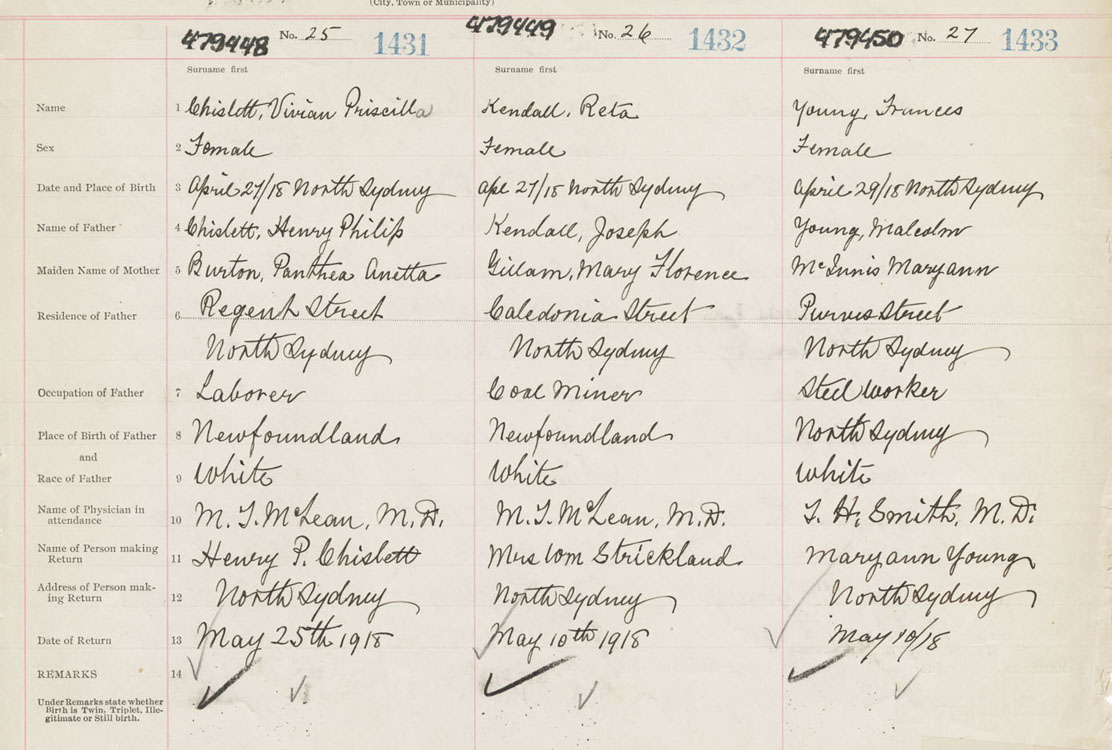 (City, Town or Municipality)
479448 No. 25 1431 479449 No. 26 1432 479450 No. 27 1433
Surname first Surname first Surname first
Name 1 Chislett, Vivian Priscilla Kendall, Reta Young, Frances
Sex 2 Female Female Female
Date and Place of Birth 3 April 27/18 North Sydney Apl 27/18 North Sydney April 29/18 North Sydney
Name of Father 4 Chislett, Henry Philip Kendall, Joseph Young, Malcolm
Maiden Name of Mother 5 Burton, Panthea Anetta Gillam, Mary Florence McInnis Maryann
Residence of Father 6 Regent Street Caledonia Street Purves Street
North Sydney North Sydney North Sydney
Occupation of Father 7 Laborer Coal Miner Steel worker
Place of Birth of Father 8 Newfoundland Newfoundland North Sydney
and
Race of Father 9 White White White
Name of Physician in
attendance 10 M. T. McLean, M.D. M. T. McLean, M.D. T. H. Smith, M.D.
Name of Person making
Return 11 Henry P. Chislett Mrs Wm Strickland Maryann Young
Address of Person mak-
ing Return 12 North Sydney North Sydney North Sydney
Date of Return 13 May 25th 1918 May 10th 1918 May 10/18
REMARKS 14
Under Remarks state whether
Birth is Twin, Triplet, Ille-
gitimate or Still birth.